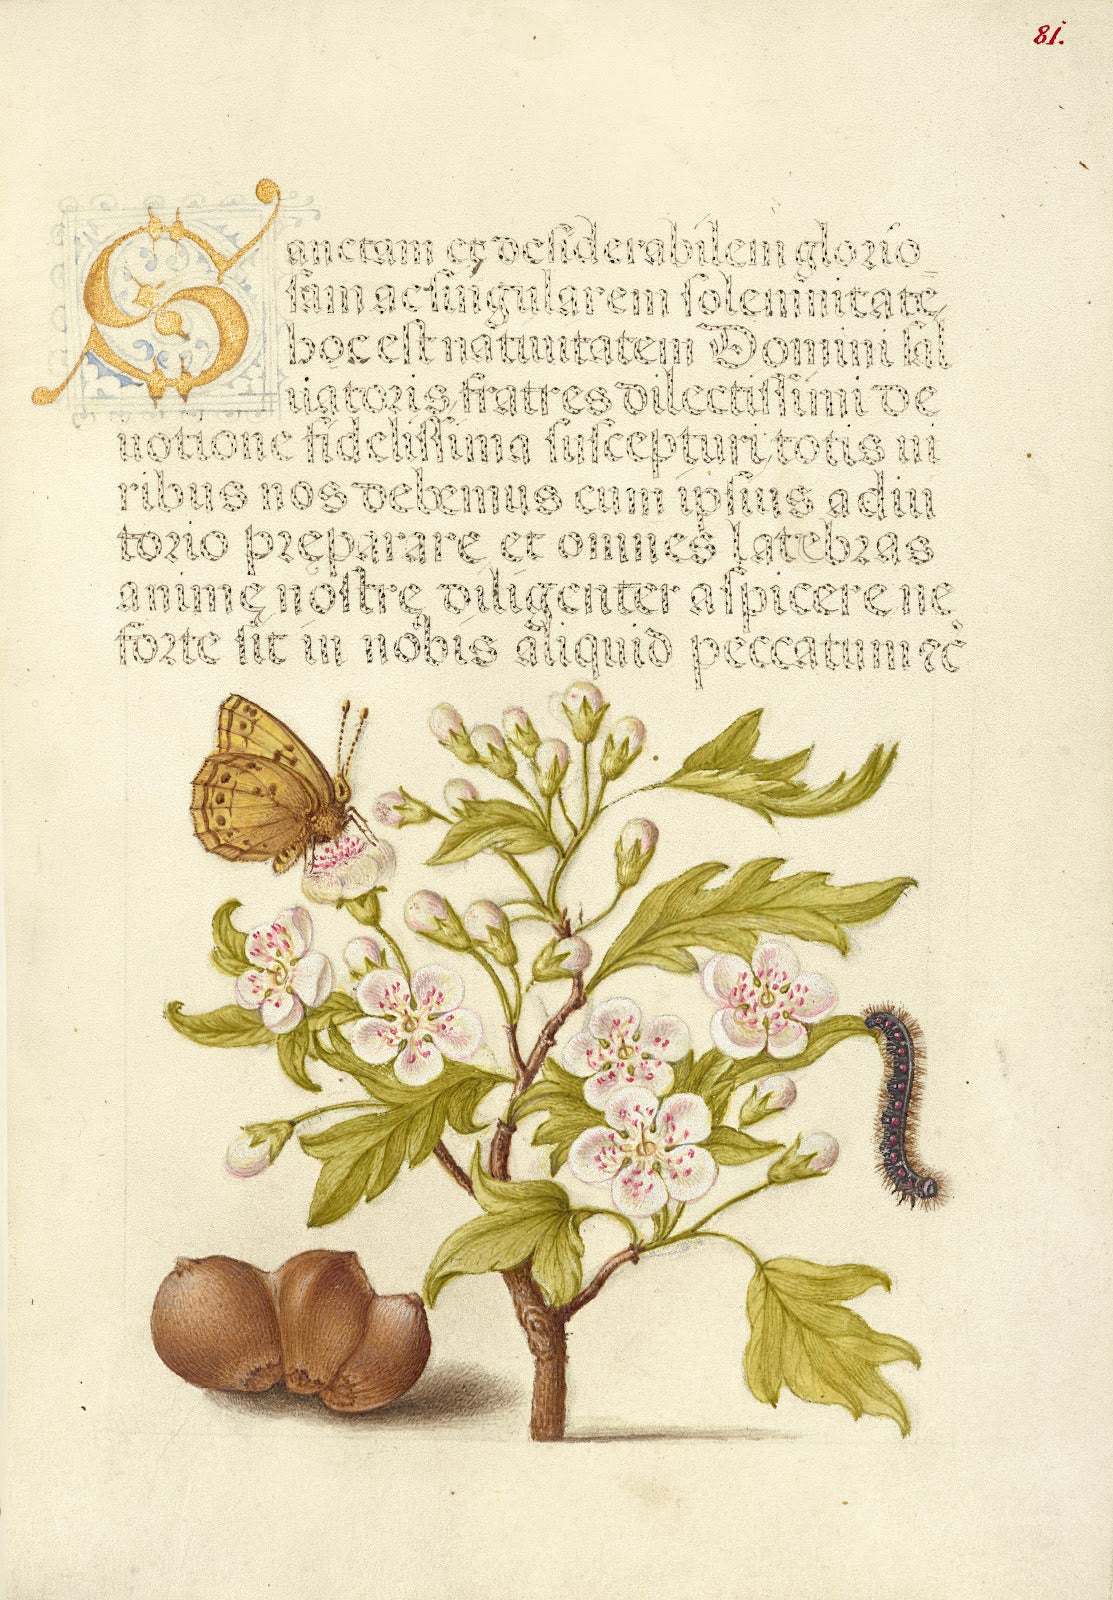 81.
Sanctam et desiderabilem glorio
sam ac singularem solemnitatē
hoc est natiuitatem Domini sal
uatoris fratres dilectissimi de
uotione fidelissima suscepturi totis ui
ribus nos debemus cum ipsius adiu
torio pręparare et omnes latebras
animę nostrę diligenter aspicere ne
forte sit in nobis aliquid peccatum ꝛc̃